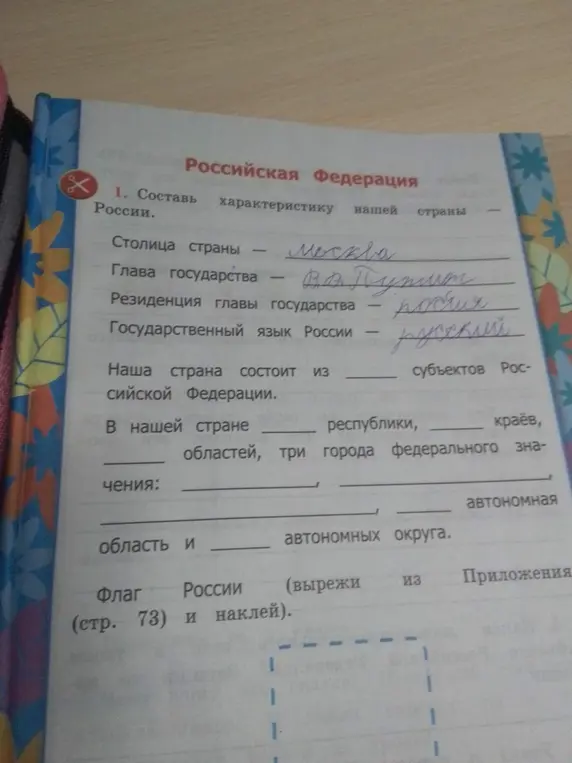 Российская Федерация
1. Составь характеристику нашей страны —
России.
Столица страны — Москва
Глава государства — В В Путин
Резиденция главы государства — россия
Государственный язык России — русский
Наша страна состоит из ______ субъектов Рос-
сийской Федерации.
В нашей стране ______ республики, ______ краёв,
______ областей, три города федерального зна-
чения: ______, ______,
______, ______ автономная
область и ______ автономных округа.
Флаг России (вырежи из Приложения
(стр. 73) и наклей).